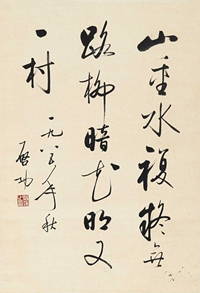 山重水複疑無
路柳暗花明又
一村
一九八五年秋
启功